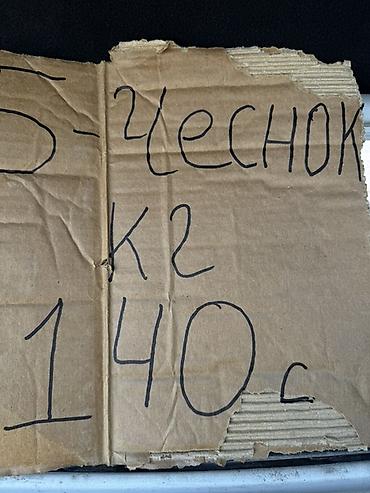 5-Чеснок
кг
140 с